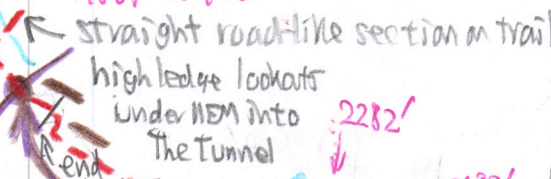 straight road-like section on trail
high ledge lookouts
under NEM into 2282'
The Tunnel
end